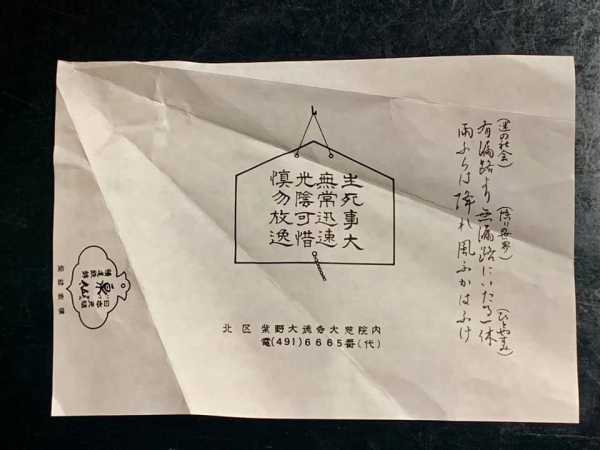 (迷の社会) (悟り世界) (ひとやすみ)
有漏路より 無漏路にいたる一休
雨ふらは 降れ 風ふかはふけ
生死事大
無常迅速
光陰可惜
慎勿放逸
北区 紫野大徳寺大慈院内
電(491)6665番(代)
泉
登録商標